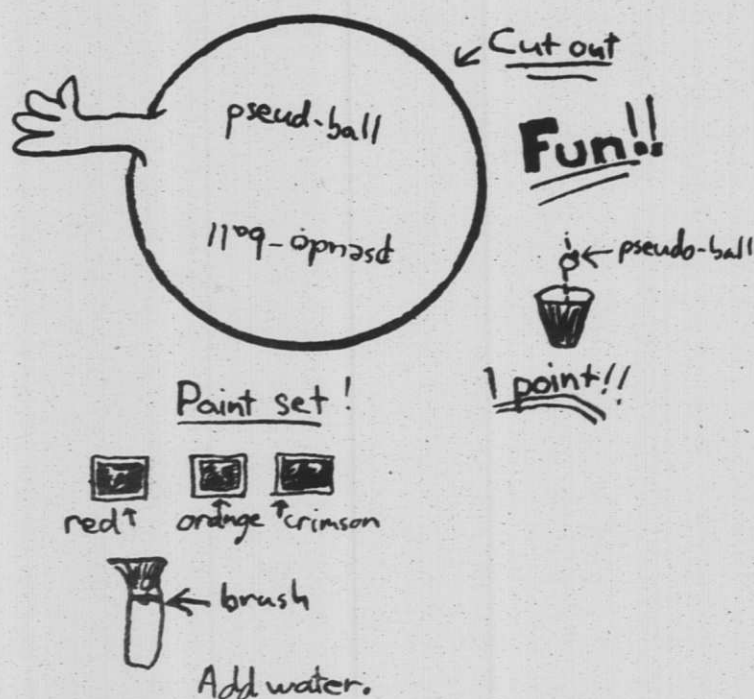 Cut out
pseud-ball
Fun!!
pseudo-ball
pseudo-ball
1 point!!
Paint set!
red orange crimson
brush
Add water.